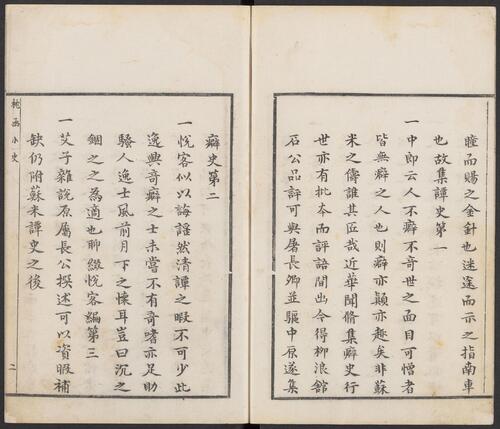 瞳而賜之金針也迷途而示之指南車
也故集譚史第一
一中郎云人不癖不奇世之面目可憎者
皆無癖之人也則癖亦顛亦趣矣非蘇
米之儔誰其匹哉近華聞脩集癖史行
世亦有批本而評語間出今得柳浪館
石公品評可與屠長卿並驅中原遂集
癖史第二
一悅客似以誨謡然清譚之暇不可少此
逸興奇癖之士未嘗不有奇嗜亦足助
騷人逸士風前月下之懷耳豈曰沉之
錮之之為適也聊綴悅客編第三
一艾子雜說原屬長公撰述可以資暇補
缺仍附蘇米譚史之後
枕函小史
二